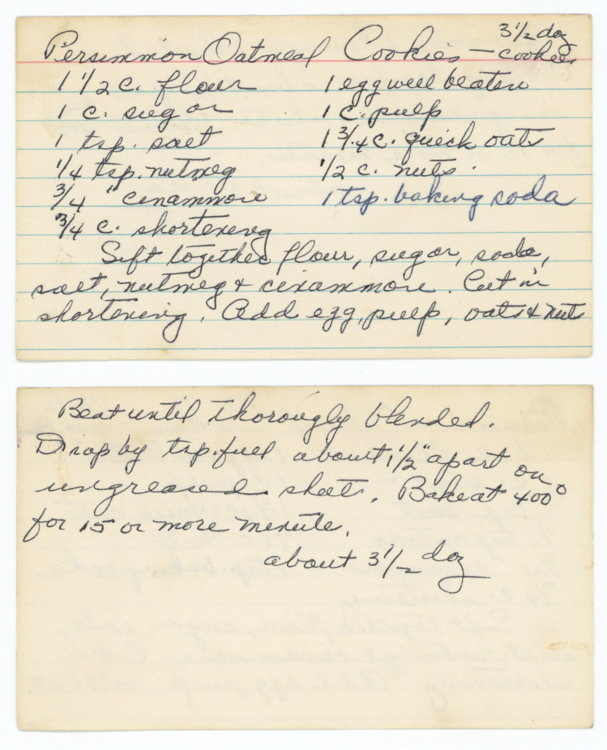 3 1/2 doz
Persimmon Oatmeal Cookies — cookies
1 1/2 c. flour 1 egg well beaten
1 c. sugar 1 c. pulp
1 tsp. salt 1 3/4 c. quick oats
1/4 tsp. nutmeg 1/2 c. nuts.
3/4 " cinammon 1 tsp. baking soda
3/4 c. shortening
Sift together flour, sugar, soda,
salt, nutmeg & cinammon. Cut in
shortening. Add egg, pulp, oats & nuts
Beat until thorougly blended.
Drop by tsp. full about 1 1/2" apart on
ungreased sheet. Bake at 400°
for 15 or more minute.
about 3 1/2 doz